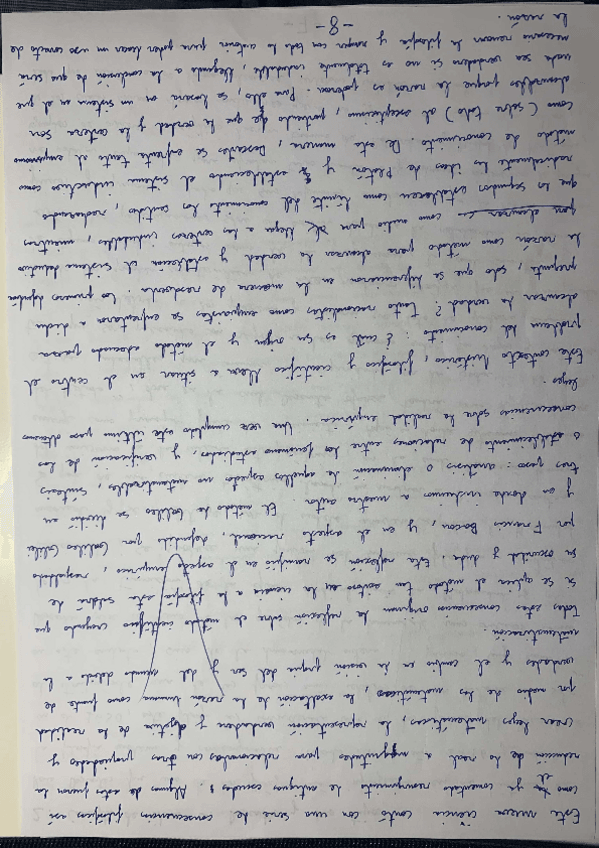 -8-
Esta nueva ciencia contó con una serie de consecuencias filosóficas así
como el ya comentado resurgimiento de antiguas escuelas. Algunas de estas fueron la
reducción de lo real a magnitudes para relacionarlas con otras propiedades y
crear leyes matemáticas, la representación verdadera y objetiva de la realidad
por medio de las matemáticas, la exaltación de la razón humana como fuente de
verdades y el cambio en la visión propia del ser y del mundo debido a la
matematización.
Todas estas consecuencias originaron la reflexión sobre el método científico creyendo que
si se aplica el método tan exitoso en la ciencia a la filosofía esta saldrá de
su oscuridad y duda. Esta reflexión se ramificó en el aspecto empírico, respaldado
por Francis Bacon, y en el aspecto racional, defendido por Galileo Galilei
y en donde incluimos a nuestro autor. El método de Galileo se dividía en
tres pasos: análisis o eliminación de aquellos aspectos no matematizables, síntesis
o establecimiento de relaciones entre los fenómenos estudiados, y verificación de las
consecuencias sobre la realidad empírica. Una vez cumplido este último paso obtenemos
leyes.
Este contexto histórico, filosófico y científico llevan a situar en el centro el
problema del conocimiento: ¿cuál es su origen y el método adecuado para
alcanzar la verdad? Tanto racionalistas como empiristas se enfrentaron a dicha
pregunta, solo que se diferenciaron en la manera de resolverla. Los primeros
la razón como método para alcanzar la verdad y establecían el sistema deductivo
como medio para llegar a las certezas indudables, mientras
que los segundos establecen como límite del conocimiento los sentidos, rechazando
radicalmente las ideas de Platón y estableciendo el sistema inductivo como
método de conocimiento. De esta manera, Descartes se enfrenta tanto al empirismo
como (sobre todo) al escepticismo, partiendo de que la verdad y la certeza son
alcanzables porque la razón es poderosa. Para ello, se basará en un sistema en el que
nada sea verdadero si no es totalmente indudable, llegando a la conclusión de que será
necesario renovar la filosofía y romper con todo lo anterior para poder hacer un uso correcto de
la razón.